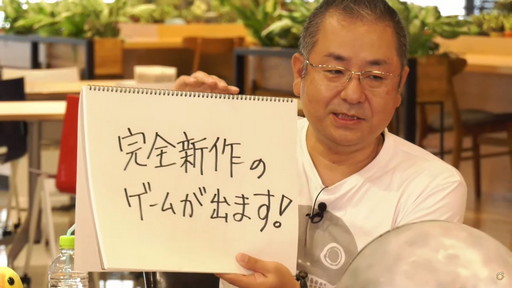 完全新作の
ゲームが出ます!